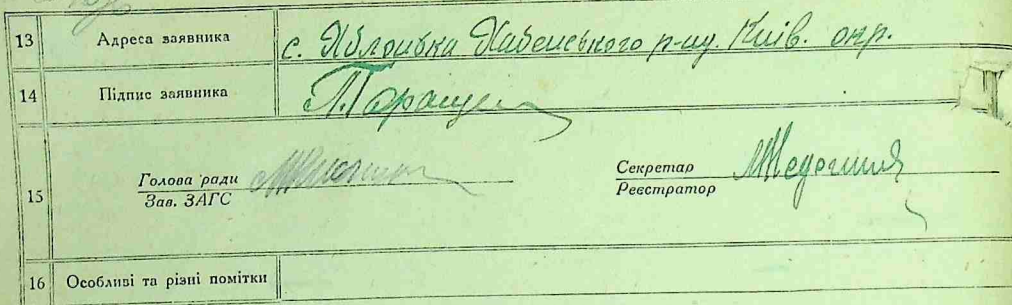 13 Адреса заявника с. Яблонька Хабенського р-ну. Київ. окр.
14 Підпис заявника
15 Голова ради Секретар
Зав. ЗАГС Реєстратор
16 Особливі та різні помітки